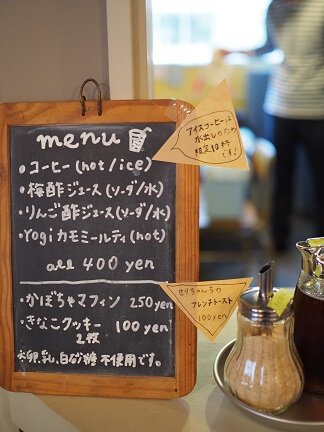 menu
・コーヒー(hot/ice)
・梅酢ジュース(ソーダ/水)
・りんご酢ジュース(ソーダ/水)
・Yogiカモミールティ(hot)
all 400 yen
・かぼちゃマフィン 250yen
・きなこクッキー 100yen
2枚
※卵、乳、白砂糖不使用です。
アイスコーヒーは
水出しのため
限定10杯
です!
せりちゃんちの
フレンチトースト
100yen